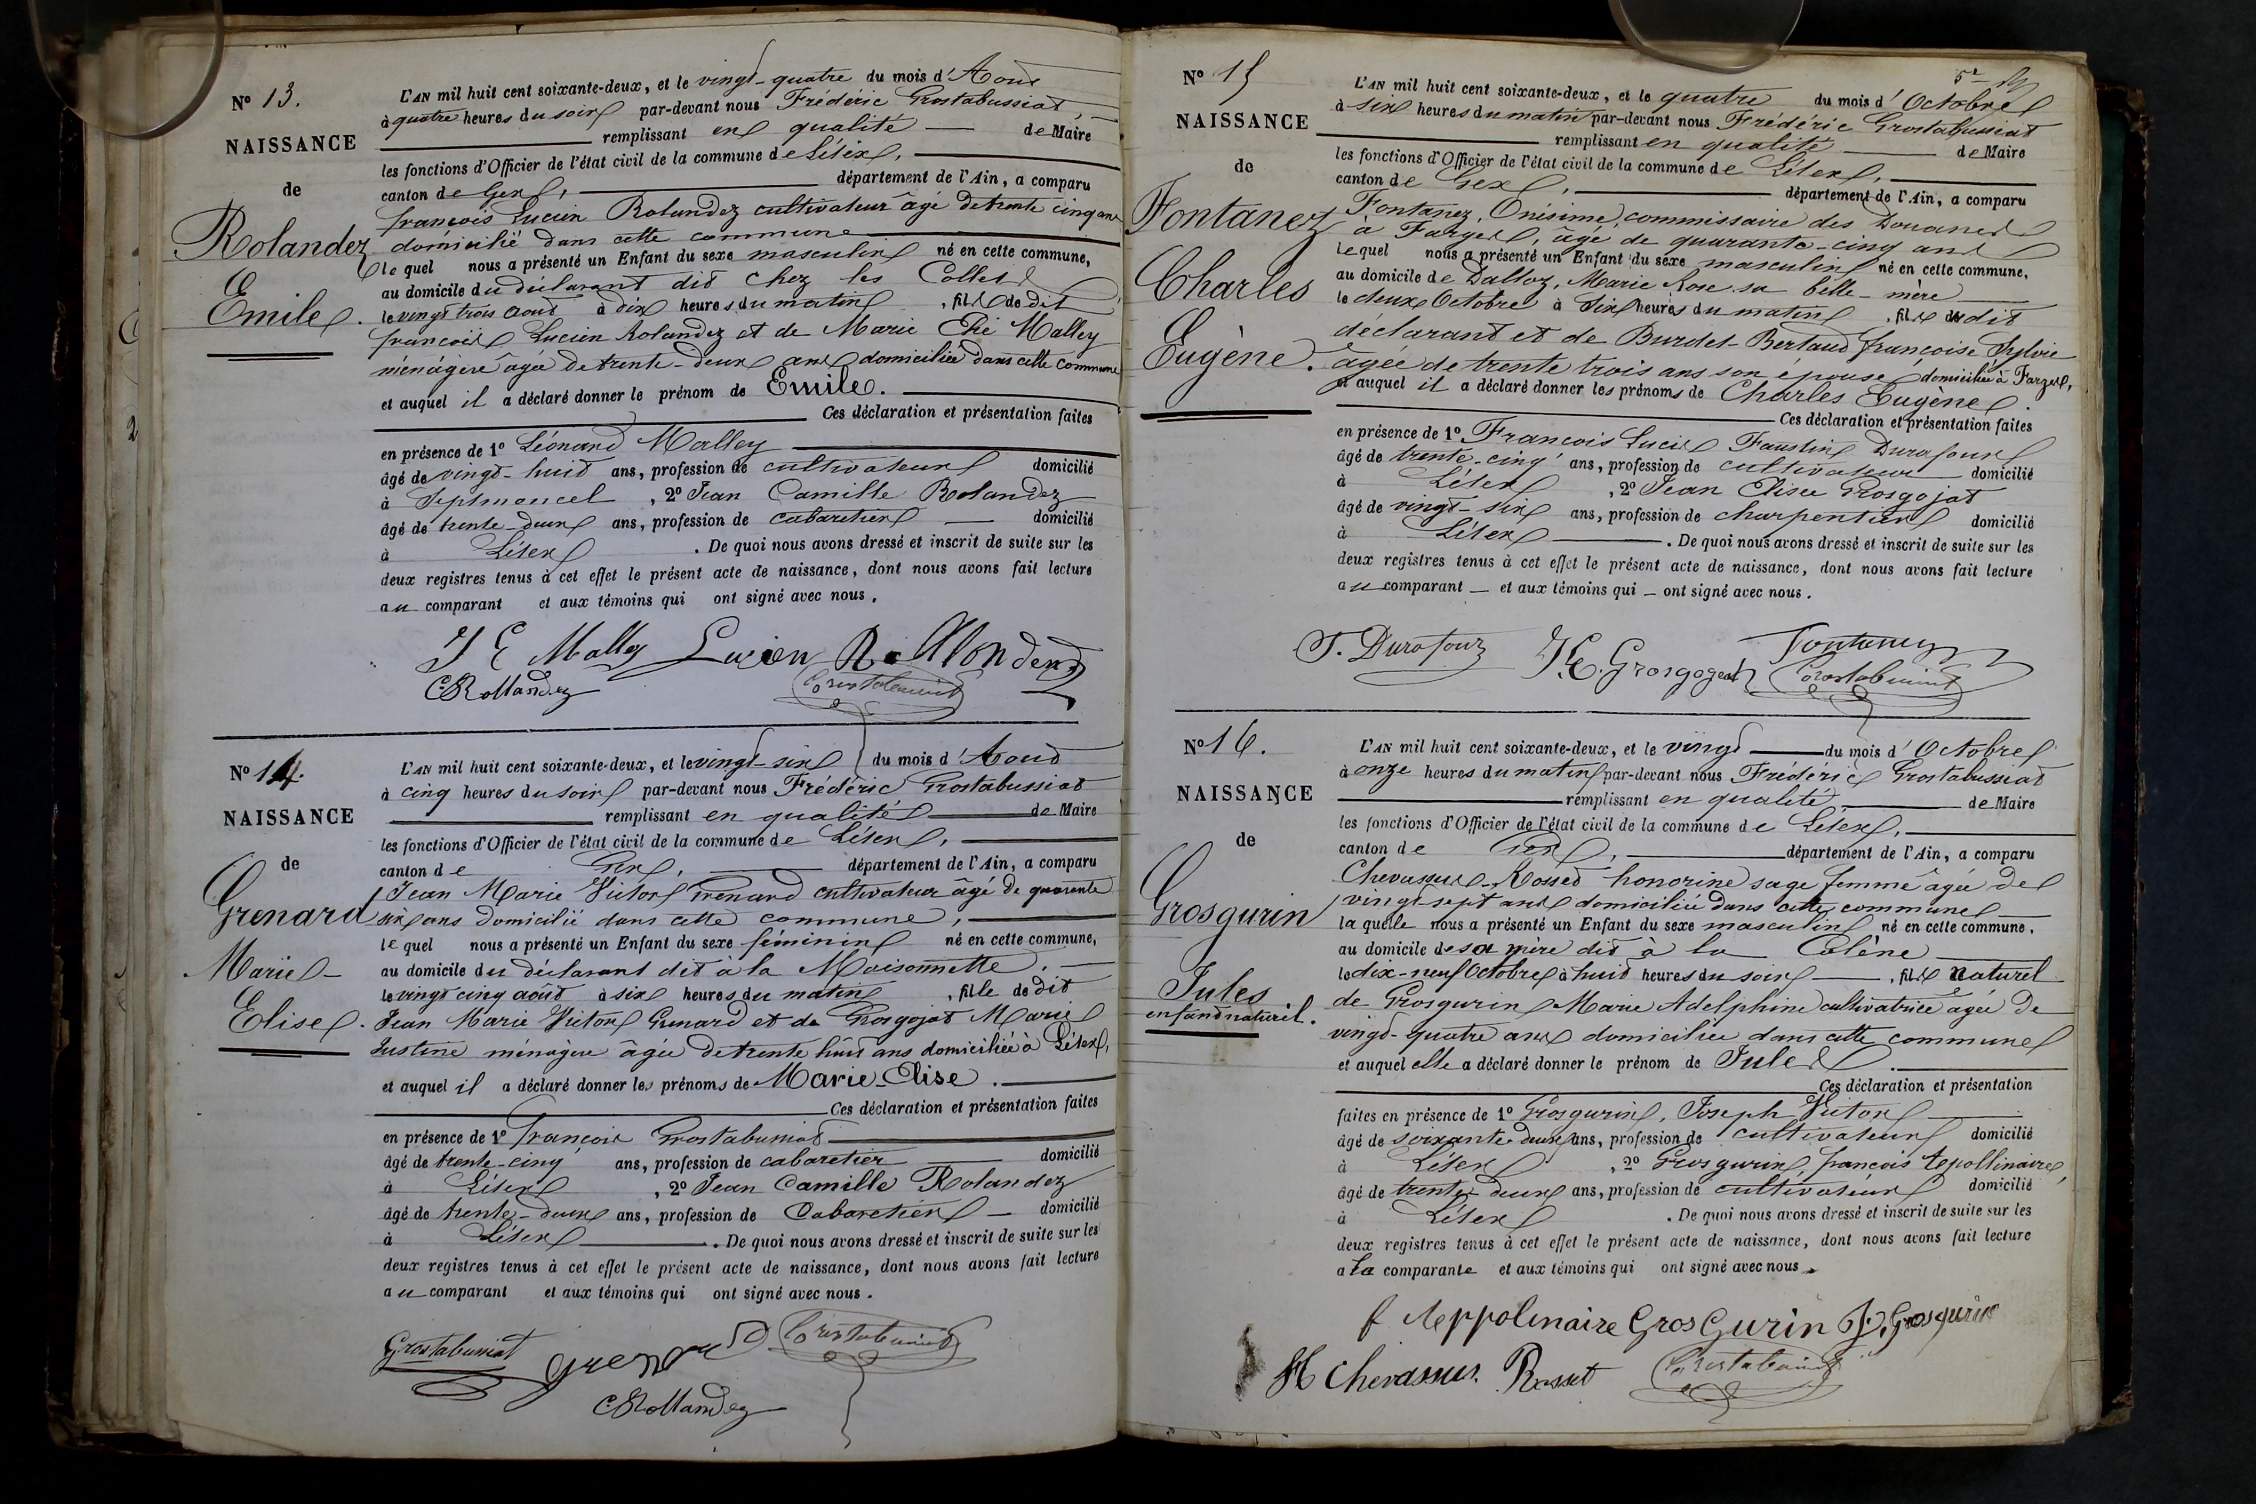 N° 13.
NAISSANCE
de
Rolandez
Emile.
L'AN mil huit cent soixante-deux, et le vingt-quatre du mois d'Aout
à quatre heures du soir par-devant nous Frédéric Grostabussiat,
remplissant en qualité de Maire
les fonctions d'Officier de l'état civil de la commune de Lélex,
canton de Gex, département de l'Ain, a comparu
françois Lucien Rolandez cultivateur âgé de trente cinq ans
domicilié dans cette commune
lequel nous a présenté un Enfant du sexe masculin né en cette commune,
au domicile du déclarant dit chez les Collet
le vingt trois aout à dix heures du matin, fils de dit
françois Lucien Rolandez et de Marie Malley
ménagère âgée de trente-deux ans domiciliée dans cette commune
et auquel il a déclaré donner le prénom de Emile.
Ces déclaration et présentation faites
en présence de 1° Léonard Malley
âgé de vingt-huit ans, profession de cultivateur domicilié
à Septmoncel, 2° Jean Camille Rolandez
âgé de trente-deux ans, profession de cabaretier domicilié
à Lélex. De quoi nous avons dressé et inscrit de suite sur les
deux registres tenus à cet effet le présent acte de naissance, dont nous avons fait lecture
au comparant et aux témoins qui ont signé avec nous.
J E Malley Lucien Rollondez
C Rollandez Grostabussiat
N° 14.
NAISSANCE
de
Grenard
Marie
Elise.
L'AN mil huit cent soixante-deux, et le vingt-six du mois d'Aout
à cinq heures du soir par-devant nous Frédéric Grostabussiat
remplissant en qualité de Maire
les fonctions d'Officier de l'état civil de la commune de Lélex,
canton de Gex, département de l'Ain, a comparu
Jean Marie Victor Grenard cultivateur âgé de quarente
six ans domicilié dans cette commune,
lequel nous a présenté un Enfant du sexe féminin né en cette commune,
au domicile du déclarant dit à la Maisonnette.
le vingt cinq août à six heures du matin, fille de dit
Jean Marie Victor Grenard et de Grosgojat Marie
Justine ménagère âgée de trente huit ans domiciliée à Lélex,
et auquel il a déclaré donner les prénoms de Marie-Elise.
Ces déclaration et présentation faites
en présence de 1° françois Grostabussiat
âgé de trente-cinq ans, profession de cabaretier domicilié
à Lélex, 2° Jean Camille Rolandez
âgé de trente-deux ans, profession de Cabaretier domicilié
à Lélex. De quoi nous avons dressé et inscrit de suite sur les
deux registres tenus à cet effet le présent acte de naissance, dont nous avons fait lecture
au comparant et aux témoins qui ont signé avec nous.
Grostabussiat Grenard Grostabussiat
C Rollandez
N° 15
NAISSANCE
de
Fontanez
Charles
Eugène.
L'AN mil huit cent soixante-deux, et le quatre du mois d'Octobre
à six heures du matin par-devant nous Frédéric Grostabussiat
remplissant en qualité de Maire
les fonctions d'Officier de l'état civil de la commune de Lélex,
canton de Gex, département de l'Ain, a comparu
Fontanez, Onésime, commissaire des Douanes
à Farges, âgé de quarante-cinq ans
lequel nous a présenté un Enfant du sexe masculin né en cette commune,
au domicile de Dalloz, Marie Rose sa belle-mère
le deux Octobre à six heures du matin, fils du dit
déclarant et de Burdet Bertaud françoise Sylvie
âgée de trente trois ans son épouse domiciliée à Farges,
et auquel il a déclaré donner les prénoms de Charles Eugène.
Ces déclaration et présentation faites
en présence de 1° François Lucis Faustin Durafour
âgé de trente-cinq ans, profession de cultivateur domicilié
à Lélex, 2° Jean Elisée Grosgojat
âgé de vingt-six ans, profession de charpentier domicilié
à Lélex. De quoi nous avons dressé et inscrit de suite sur les
deux registres tenus à cet effet le présent acte de naissance, dont nous avons fait lecture
au comparant et aux témoins qui ont signé avec nous.
F. Durafour J. E. Grosgogeat Fontanez
Grostabussiat
N° 16.
NAISSANCE
de
Grosgurin
Jules.
enfant naturel.
L'AN mil huit cent soixante-deux, et le vingt du mois d'Octobre
à onze heures du matin par-devant nous Frédéric Grostabussiat
remplissant en qualité de Maire
les fonctions d'Officier de l'état civil de la commune de Lélex,
canton de Gex, département de l'Ain, a comparu
Chevassus-Rosset honorine sage femme âgée de
vingt-sept ans domiciliée dans cette commune
laquelle nous a présenté un Enfant du sexe masculin né en cette commune,
au domicile de sa mère dit à la Calène
le dix-neuf Octobre à huit heures du soir, fils naturel
de Grosgurin Marie Adelphine cultivatrice âgée de
vingt-quatre ans domiciliée dans cette commune
et auquel elle a déclaré donner le prénom de Jules.
Ces déclaration et présentation
faites en présence de 1° Grosgurin, Joseph Victor
âgé de soixante deux ans, profession de cultivateur domicilié
à Lélex, 2° Grosgurin, françois Appollinaire,
âgé de trente-deux ans, profession de cultivateur domicilié
à Lélex. De quoi nous avons dressé et inscrit de suite sur les
deux registres tenus à cet effet le présent acte de naissance, dont nous avons fait lecture
a la comparante et aux témoins qui ont signé avec nous.
f Appolinaire GrosGurin J. Grosgurin
H Chevassus. Rosset Grostabussiat